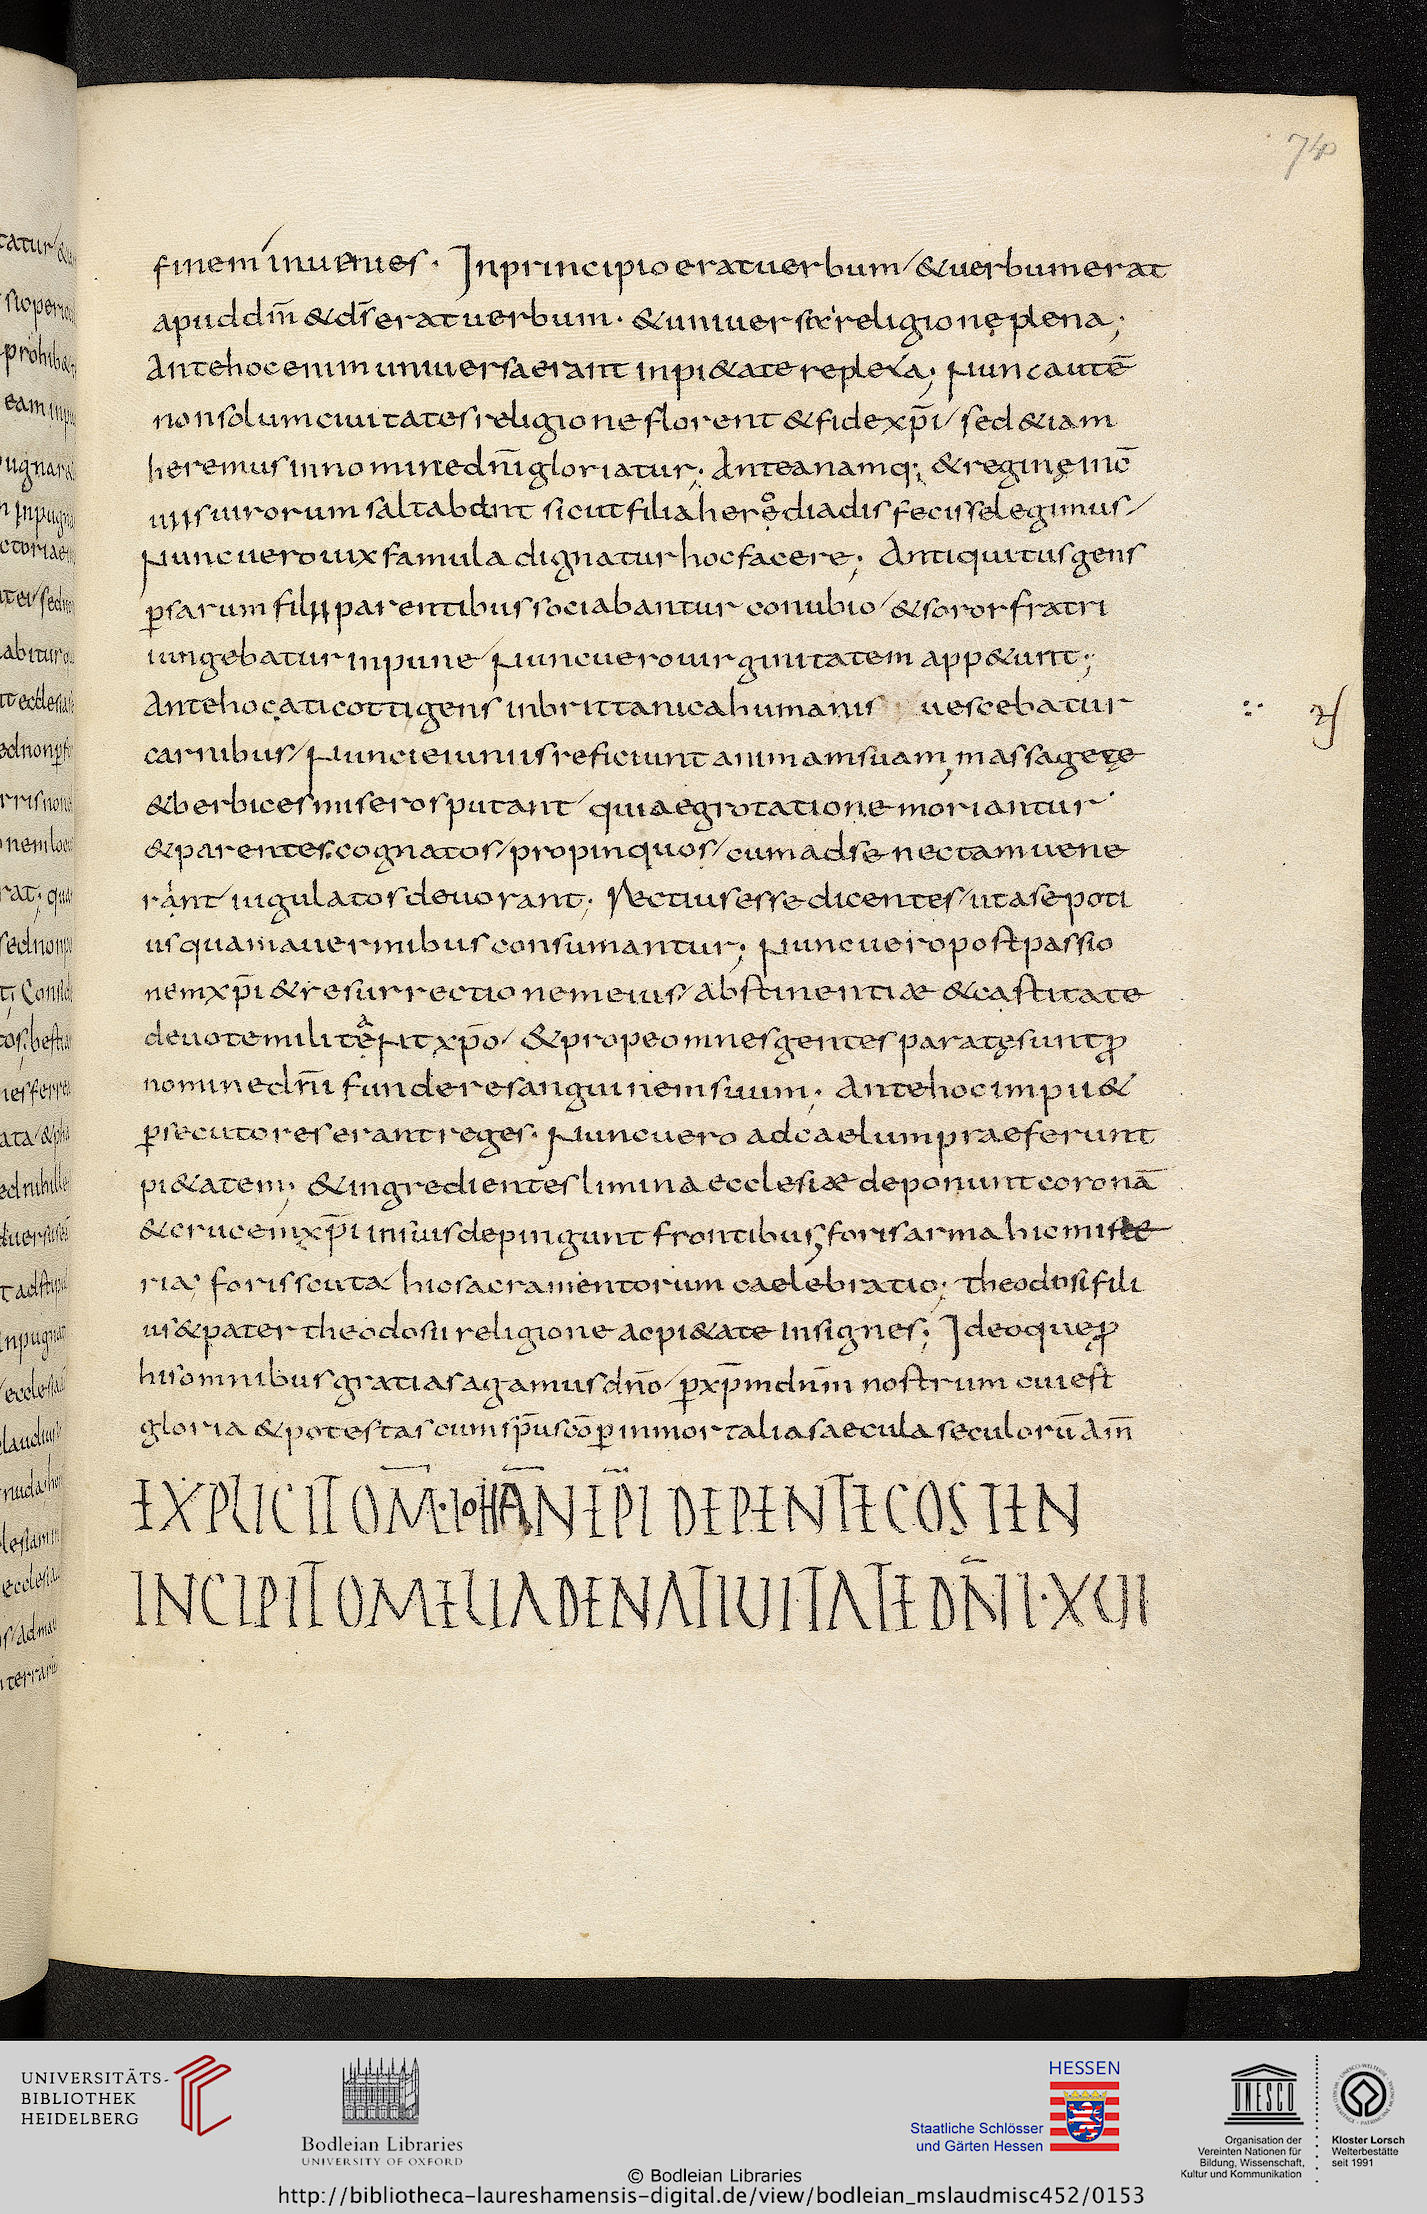 74
finem inuenies. In principio erat uerbum / & uerbum erat
apud dm̄ & ds̄ erat uerbum. & uniuersa religione plena;
Ante hoc enim uniuersa erant inpi&ate replexa; Nunc autē
non solum ciuitates religione florent & fide xp̄i / sed &iam
heremus in nomine dn̄i gloriatur; Antea namq; & reginę in c̄
uiis uirorum saltabant sicut filia herodiadis fecisse legimus /
Nunc uero uix famula dignatur hoc facere; Antiquitus gens
ꝑsarum filii parentibus sociabantur conubio / & soror fratri
iungebatur inpune / Nunc uero uirginitatem app&unt;
Ante hoc aticotti gens in brittanica humanis uescebatur
carnibus / Nunc ieiuniis reficiunt animam suam, massagetę
& berbices miseros putant / qui aegrotatione moriantur
& parentes. cognatos / propinquos / cum ad senectam uene
rant iugulatos deuorant; Rectius esse dicentes / ut a se poti
us quam a uermibus consumantur; Nunc uero post passio
nem xp̄i & resurrectionem eius / abstinentiæ & castitate
deuote militant xp̄o / & prope omnes gentes paratę sunt ꝓ
nomine dn̄i fundere sanguinem suum; Ante hoc impii &
ꝑsecutores erant reges. Nunc uero ad caelum praeferunt
pi&atem; & ingredientes limina ecclesiæ deponunt coronā
& crucem xp̄i in suis depingunt frontibus, foris arma hic miste
ria, foris scuta hic sacramentorum caelebratio; theodosi fili
us & pater theodosii religione ac pi&ate insignes; Ideoque ꝓ
hiis omnibus gratias agamus dn̄o / ꝑ xp̄m dn̄m nostrum cui est
gloria & potestas cum sp̄u sc̄o ꝑ inmortalia saecula seculorū am̄
EXPLICIT OM̄. IOHAN̄ EP̄I DE PENTECOSTEN
INCIPIT OMELIA DE NATIUITATE DN̄I. XUII
UNIVERSITÄTS-
BIBLIOTHEK
HEIDELBERG
Bodleian Libraries
UNIVERSITY OF OXFORD
HESSEN
Staatliche Schlösser
und Gärten Hessen
UNESCO
Organisation der
Vereinten Nationen für
Bildung, Wissenschaft,
Kultur und Kommunikation
Kloster Lorsch
Welterbestätte
seit 1991
© Bodleian Libraries
http://bibliotheca-laureshamensis-digital.de/view/bodleian_mslaudmisc452/0153